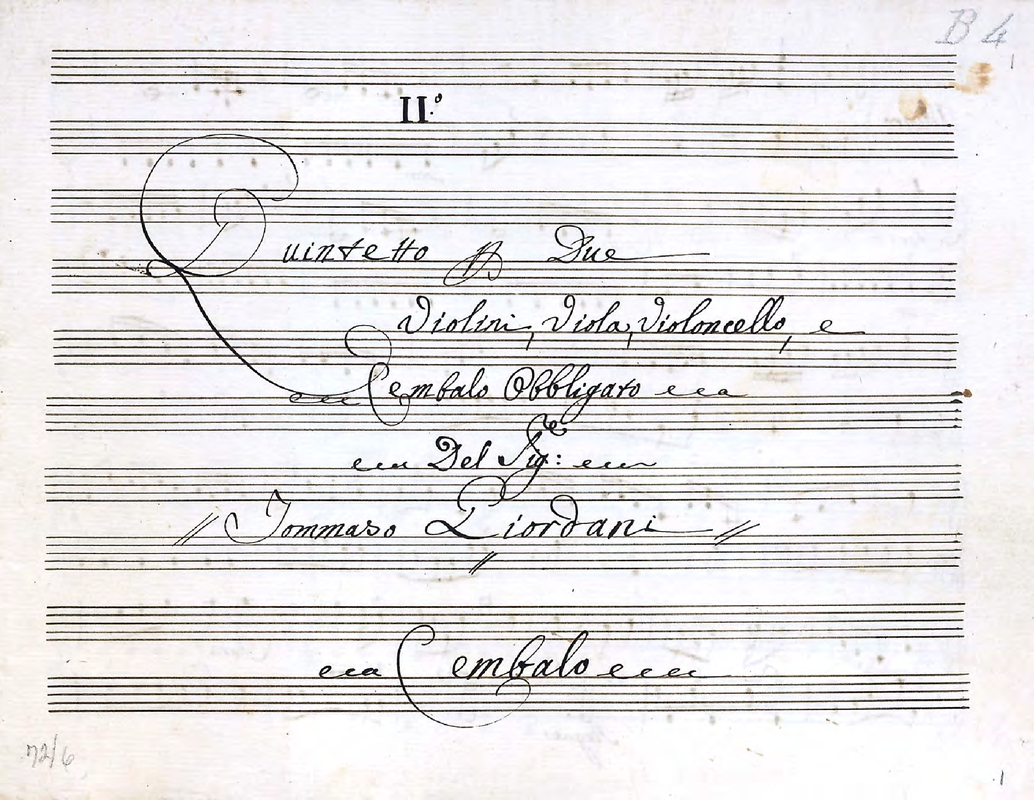 B 4
II.º
Quintetto Due
Violini, Viola, Violoncello, e
Cembalo Obbligato
Del Sig:re
Tommaso Giordani
Cembalo
72/6
1